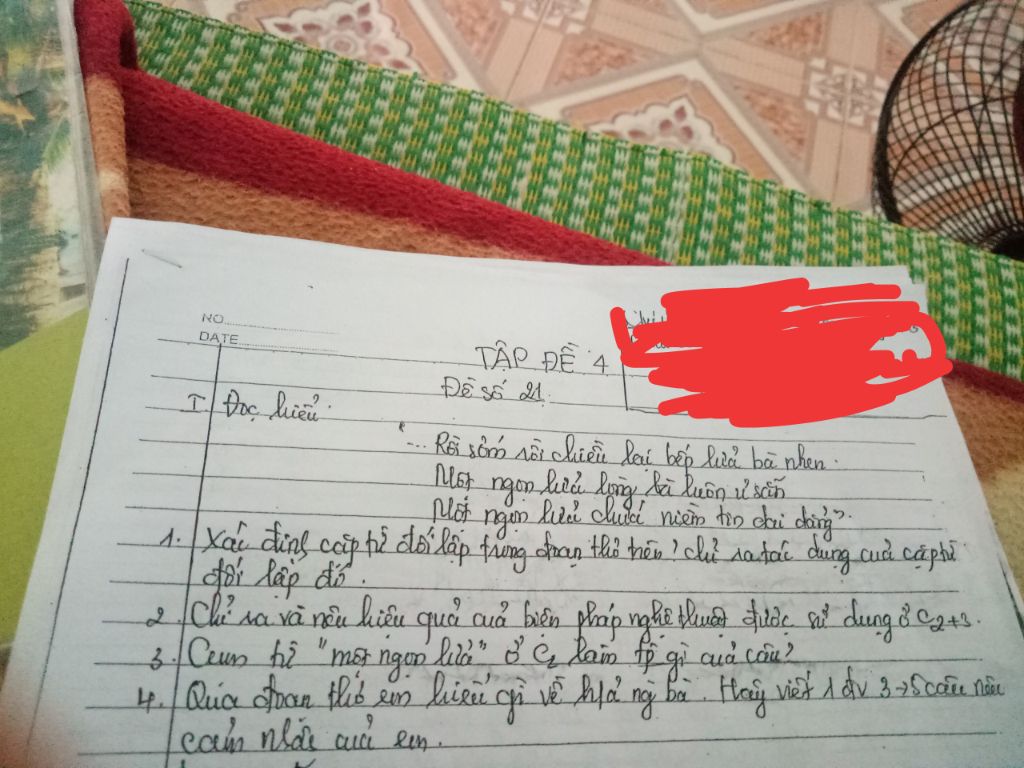 NO
DATE
TẬP ĐỀ 4
Đề số 21.
I. Đọc hiểu:
"... Rồi sớm rồi chiều lại bếp lửa bà nhen.
Một ngọn lửa lòng bà luôn ủ sẵn
Một ngọn lửa chứa niềm tin dai dẳng".
1. Xác định cặp từ đối lập trong đoạn thơ trên? Chỉ ra tác dụng cuả cặp từ
đối lập đó.
2. Chỉ ra và nêu hiệu quả cuả biện pháp nghệ thuật được sử dụng ở C2+3.
3. Cụm từ "một ngọn lửa" ở C2 làm TP gì cuả câu?
4. Qua đoạn thơ em hiểu gì về h/ả ng bà. Hãy viết 1 đv 3→5 câu nêu
cảm nhận cuả em.